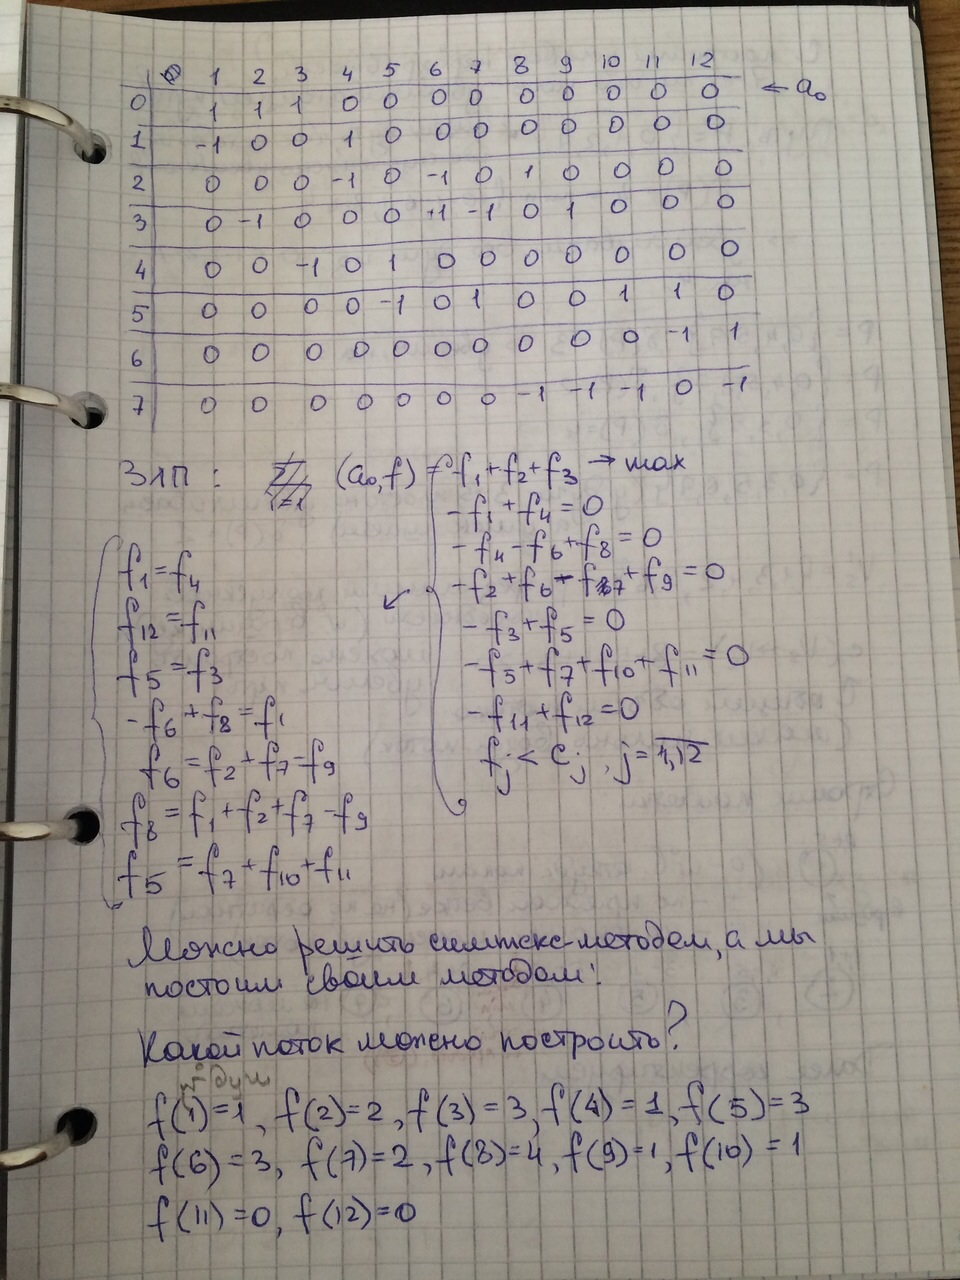 0 1 2 3 4 5 6 7 8 9 10 11 12
0 1 1 1 0 0 0 0 0 0 0 0 0 ← a₀
1 -1 0 0 1 0 0 0 0 0 0 0 0
2 0 0 0 -1 0 -1 0 1 0 0 0 0
3 0 -1 0 0 0 +1 -1 0 1 0 0 0
4 0 0 -1 0 1 0 0 0 0 0 0 0
5 0 0 0 0 -1 0 1 0 0 1 1 0
6 0 0 0 0 0 0 0 0 0 0 -1 1
7 0 0 0 0 0 0 0 -1 -1 -1 0 -1
ЗЛП: (a₀, f) = f₁ + f₂ + f₃ → max
-f₁ + f₄ = 0
-f₄ - f₆ + f₈ = 0
-f₂ + f₆ - f₇ + f₉ = 0
-f₃ + f₅ = 0
-f₅ + f₇ + f₁₀ + f₁₁ = 0
-f₁₁ + f₁₂ = 0
fⱼ < cⱼ, j = 1,12
↙
f₁ = f₄
f₁₂ = f₁₁
f₅ = f₃
-f₆ + f₈ = f₁
f₆ = f₂ + f₇ - f₉
f₈ = f₁ + f₂ + f₇ - f₉
f₅ = f₇ + f₁₀ + f₁₁
Можно решить симплекс-методом, а мы
постоим своим методом!
Какой поток можно построить?
f(1)=1, f(2)=2, f(3)=3, f(4)=1, f(5)=3
f(6)=3, f(7)=2, f(8)=4, f(9)=1, f(10)=1
f(11)=0, f(12)=0